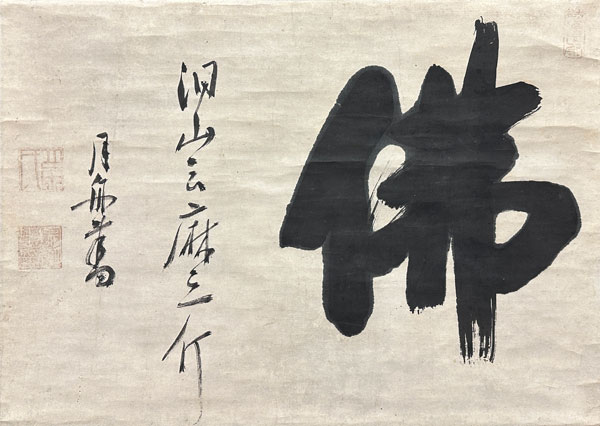 佛
洞山云麻三斤
月舟書